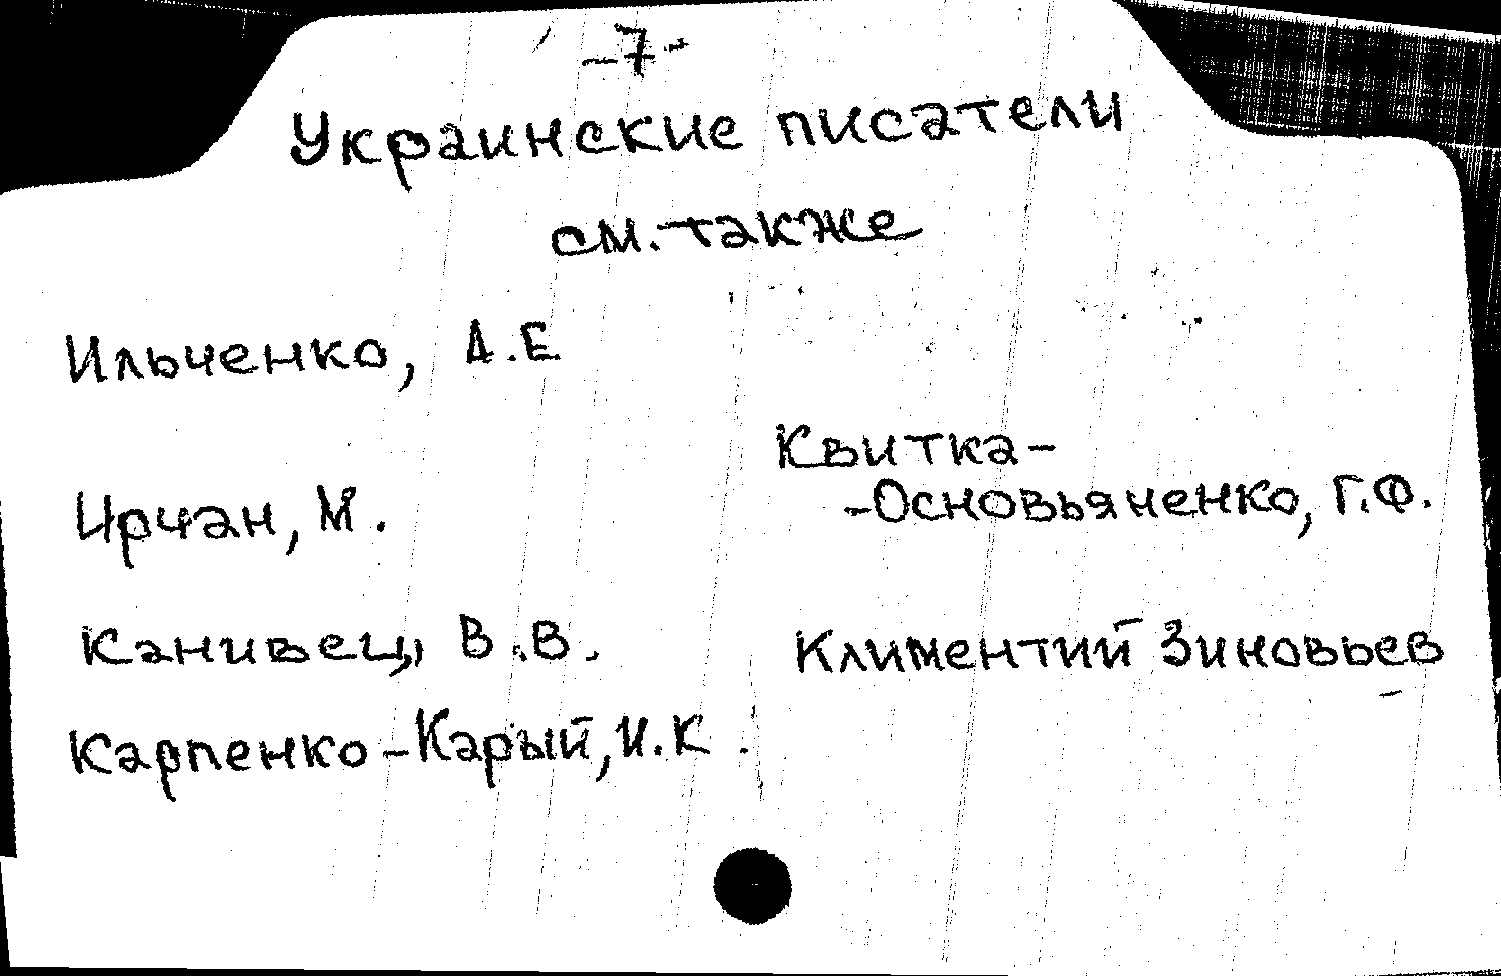 -7-
Украинские писатели
см. также
Ильченко, А.Е.
Ирчан, М.
Канивец, В.В.
Карпенко-Карый, И.К.
Квитка-
-Основьяненко, Г.Ф.
Климентий Зиновьев